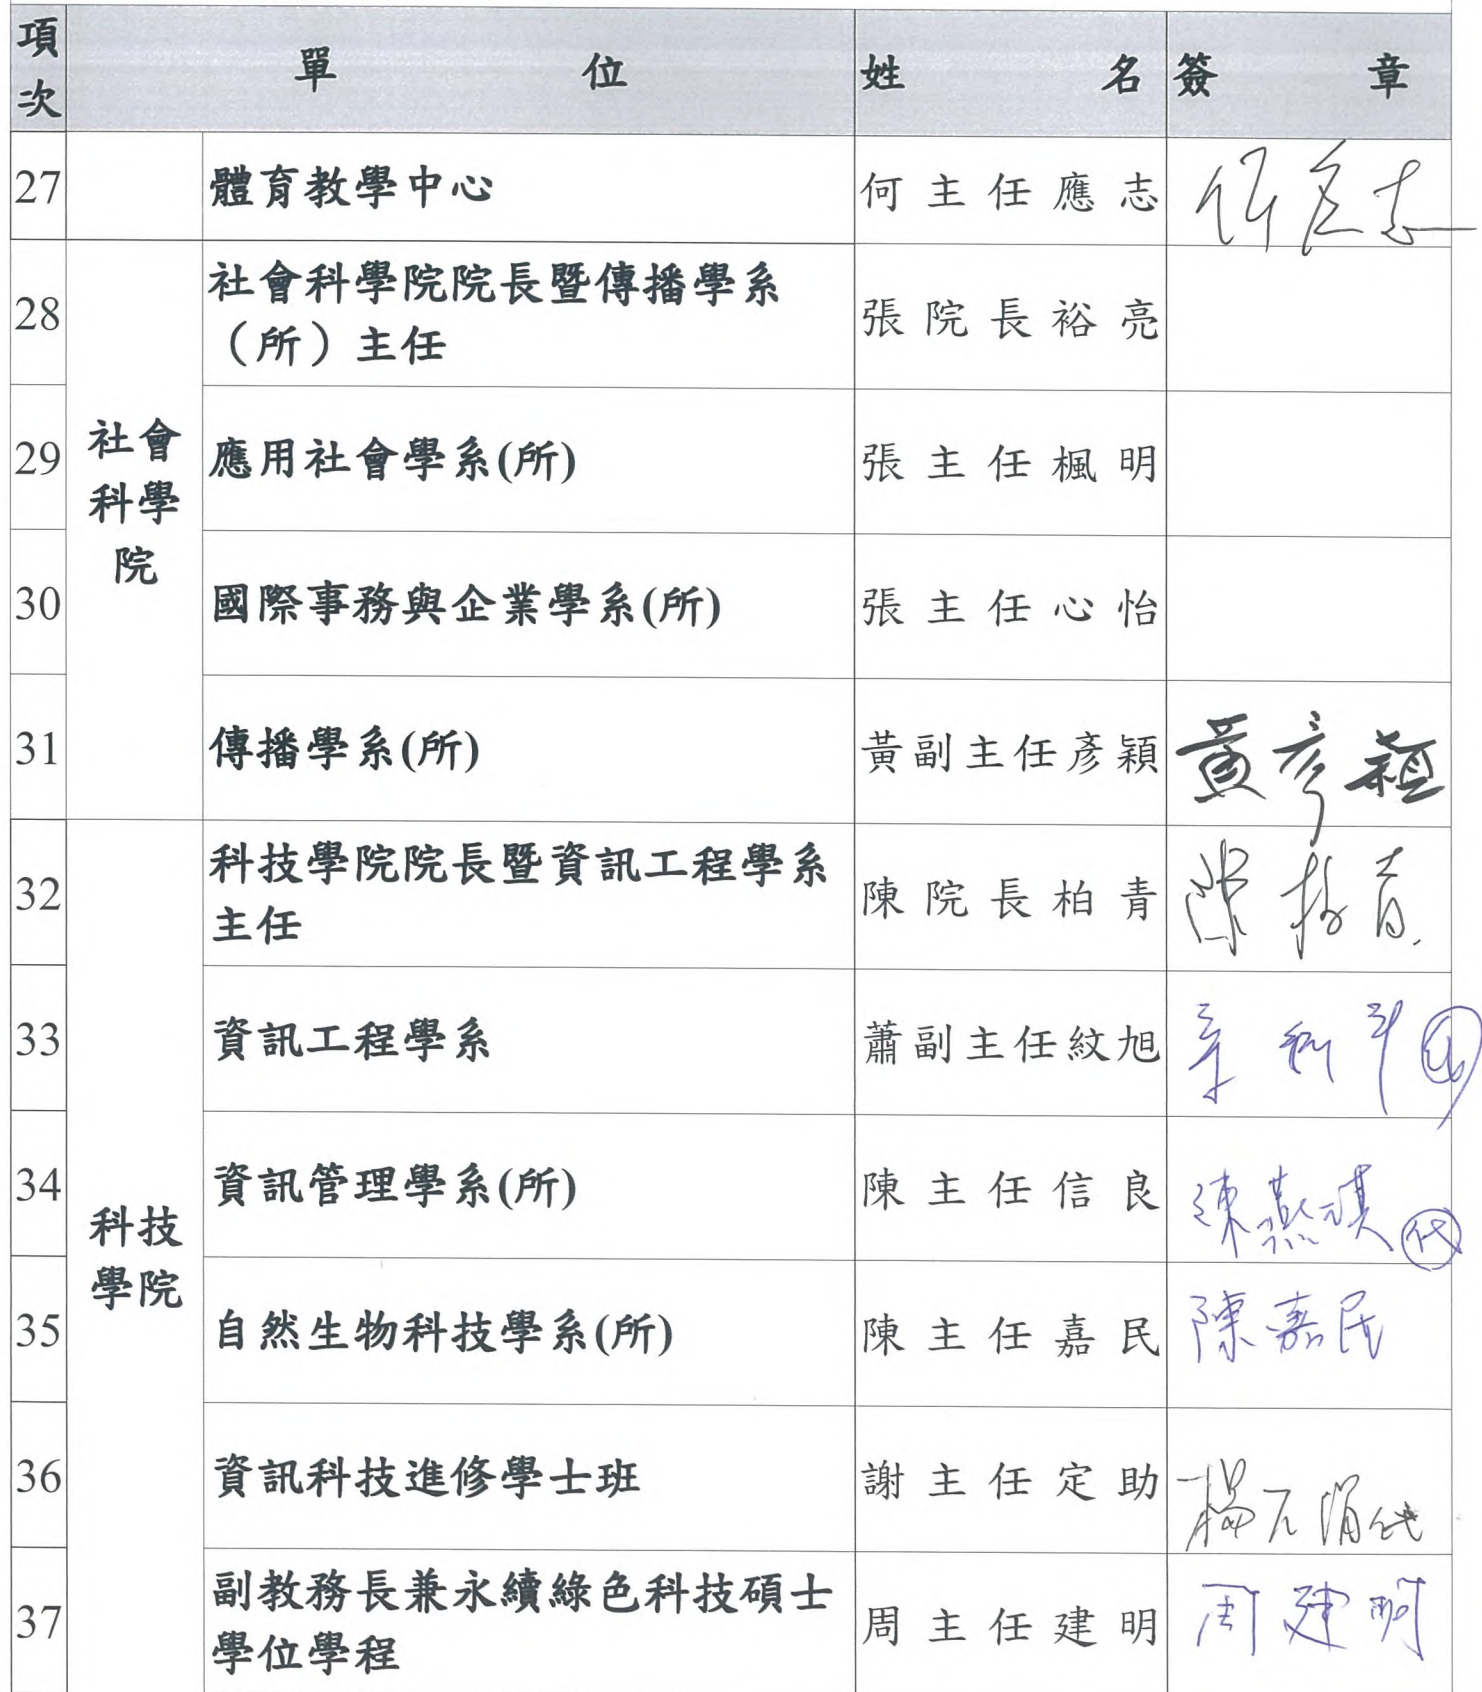 項次 單位 姓名 簽章
27 體育教學中心 何主任應志 何應志
社會科學院
28 社會科學院院長暨傳播學系
（所）主任 張院長裕亮
29 應用社會學系(所) 張主任楓明
30 國際事務與企業學系(所) 張主任心怡
31 傳播學系(所) 黃副主任彥穎 黃彥穎
科技學院
32 科技學院院長暨資訊工程學系
主任 陳院長柏青 陳柏青
33 資訊工程學系 蕭副主任紋旭
34 資訊管理學系(所) 陳主任信良 陳燕琪 代
35 自然生物科技學系(所) 陳主任嘉民 陳嘉民
36 資訊科技進修學士班 謝主任定助 代
37 副教務長兼永續綠色科技碩士
學位學程 周主任建明 周建明